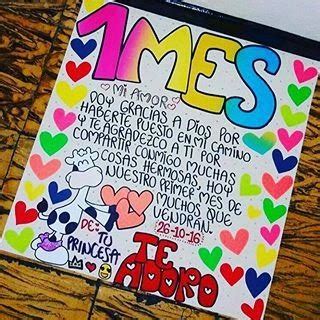 1MES
MI AMOR
DOY GRACIAS A DIOS POR
HABERTE PUESTO EN MI CAMINO
Y TE AGRADEZCO A TI POR
COMPARTIR CONMIGO MUCHAS
COSAS HERMOSAS, HOY
NUESTRO PRIMER MES DE
MUCHOS QUE
VENDRÁN.
26-10-16
DE: TU
PRINCESA
TE
ADORO